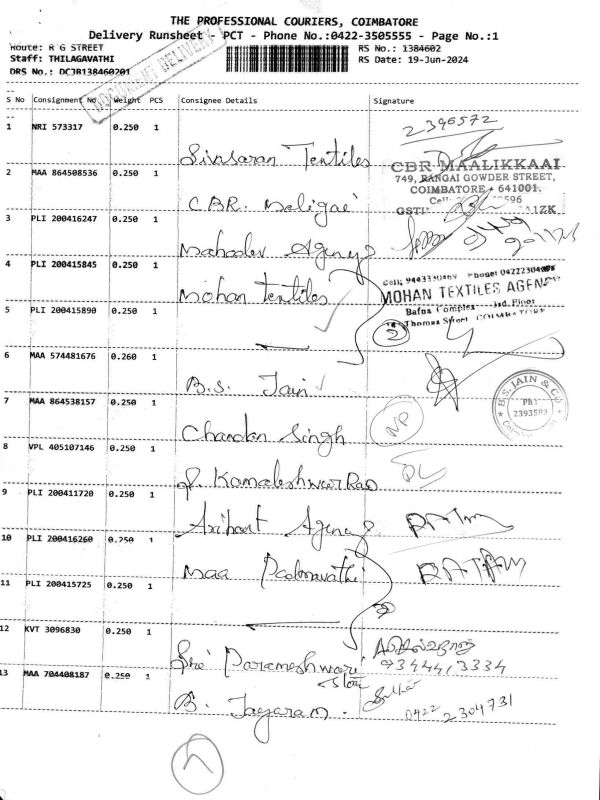 THE PROFESSIONAL COURIERS, COIMBATORE
Delivery Runsheet - PCT - Phone No.:0422-3505555 - Page No.:1
Route: R G STREET
RS No.: 1384602
Staff: THILAGAVATHI
RS Date: 19-Jun-2024
DRS No.: DCJB138460201
DOCUMENT DELIVERY
S No Consignment No Weight PCS Consignee Details Signature
1 NRI 573317 0.250 1 Sivsaran Textiles 2396572
2 MAA 864508536 0.250 1 C.B.R. Maligai
CBR MAALIKKAAI
749, RANGAI GOWDER STREET,
COIMBATORE - 641001.
3 PLI 200416247 0.250 1 Mahadev Agency
4 PLI 200415845 0.250 1 Mohan textiles
Cell: 9443330469 Phone: 04222304
MOHAN TEXTILES AGENCY
Bafna Complex 3rd Floor
Thomas Street, COIMBATORE
5 PLI 200415890 0.250 1
2
6 MAA 574481676 0.260 1 B.S. Jain
B.S. JAIN & Co
Ph:
2393503
7 MAA 864538157 0.250 1 Chandan Singh NP
8 VPL 405107146 0.250 1 P. Kamaleshwar Rao
9 PLI 200411720 0.250 1 Arihant Agency
10 PLI 200416260 0.250 1 Maa Padmavathi RATAM
11 PLI 200415725 0.250 1
12 KVT 3096830 0.250 1 Sri Parameshwari Store
9344413334
13 MAA 704408187 0.250 1 B. Jayaram.
0422 2304731